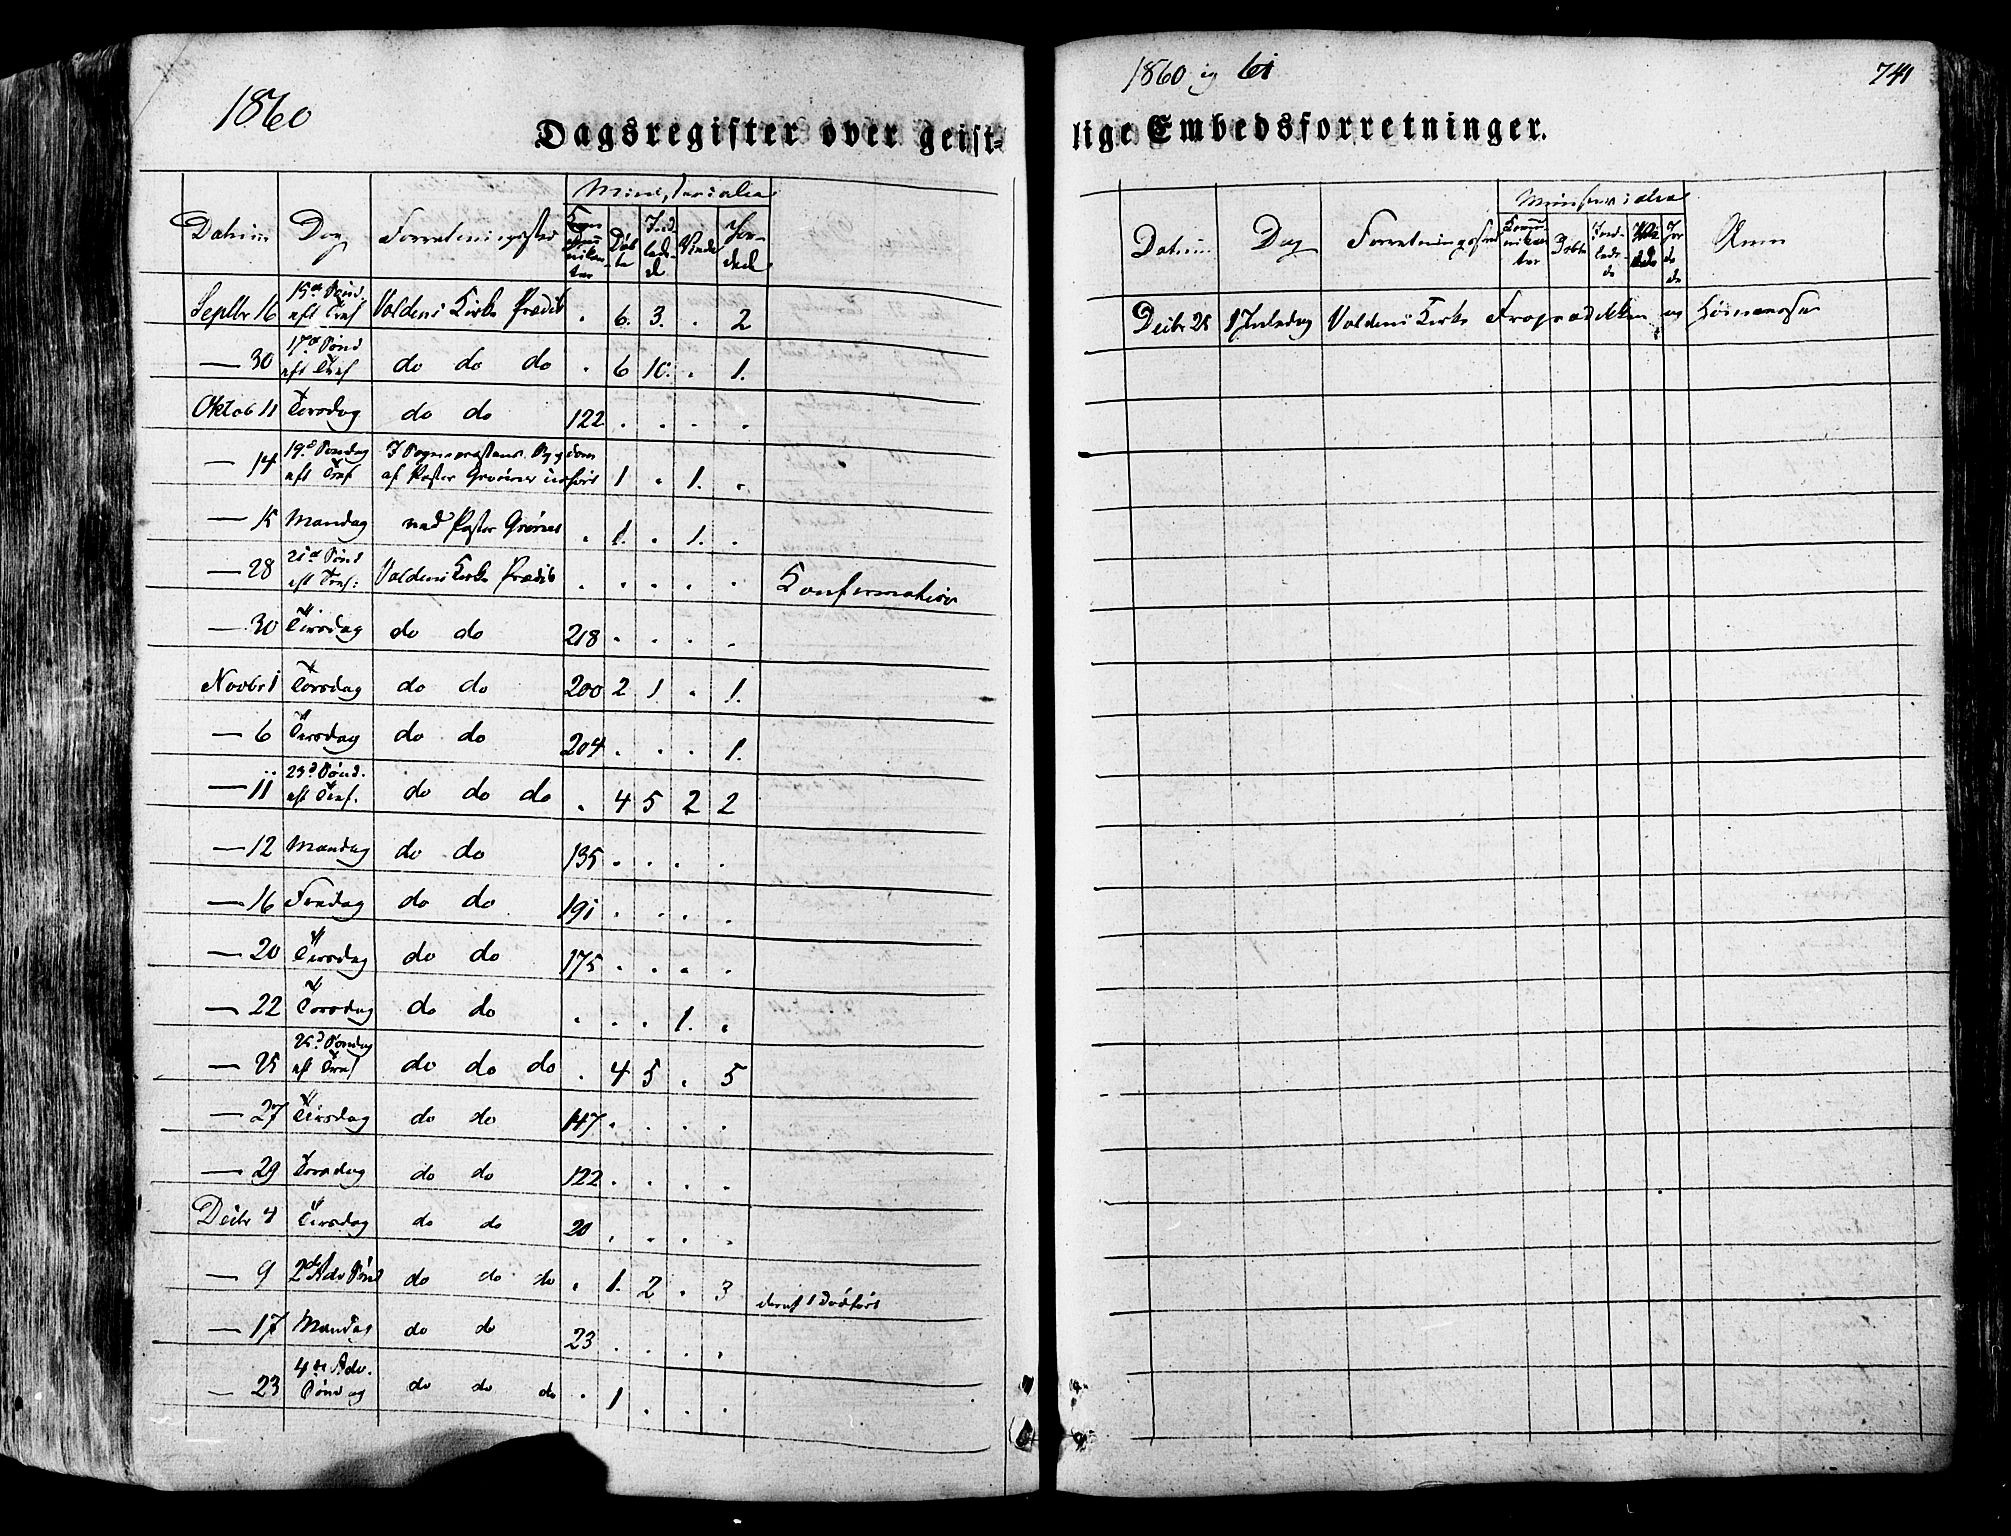 1860
Dagsregister over geist-
Ministerialia
Datum Dag Forretningssted Kommunikanter Døbte Indledede Viede Jordede
Septbr 16 15de Sønd. eft Tref Valders Kirke Prædik . 6. 3. . 2
— 30 17de Sønd eft Tref do do do . 6 10. . 1.
Oktob 11 Torsdag do do 122 . . . .
— 14 19de Søndag eft Tref I Sognepræstens Sygdom af Pastor Grønnes udført 1 . 1. .
— 15 Mandag ved Pastor Grønnes . 1. . 1. .
— 28 21de Sønd eft Tref: Valders Kirke Prædik . . . . . Konfirmation
— 30 Tirsdag do do 218 . . . .
Novbr 1 Torsdag do do 200 2 1 . 1.
— 6 Tirsdag do do 204 . . . 1.
— 11 23d Sønd. eft Tref. do do do . 4 5 2 2
— 12 Mandag do do 135 . . . .
— 16 Fredag do do 191 . . . .
— 20 Tirsdag do do 175 . . . .
— 22 Torsdag do do . . . 1. .
— 25 25d Søndag eft Tref do do do . 4 5 . 5
— 27 Tirsdag do do 147 . . . .
— 29 Torsdag do do 122 . . . .
Decbr 4 Tirsdag do do 20 . . . .
— 9 2den Adv Sønd do do do . 1. 2 . 3 deraf 1 dødfødt
— 17 Mandag do do 23 . . . .
— 23 4de Adv. Søndag do do do . 1 . . .
1860 og 61
741
lige Embedsforretninger.
Ministerialia
Datum Dag Forretningssted Kommunikanter Døbte Indledede Viede Jordede Anm
Decbr 25 1 Juledag Valders Kirke Froprædikken og Høimesse